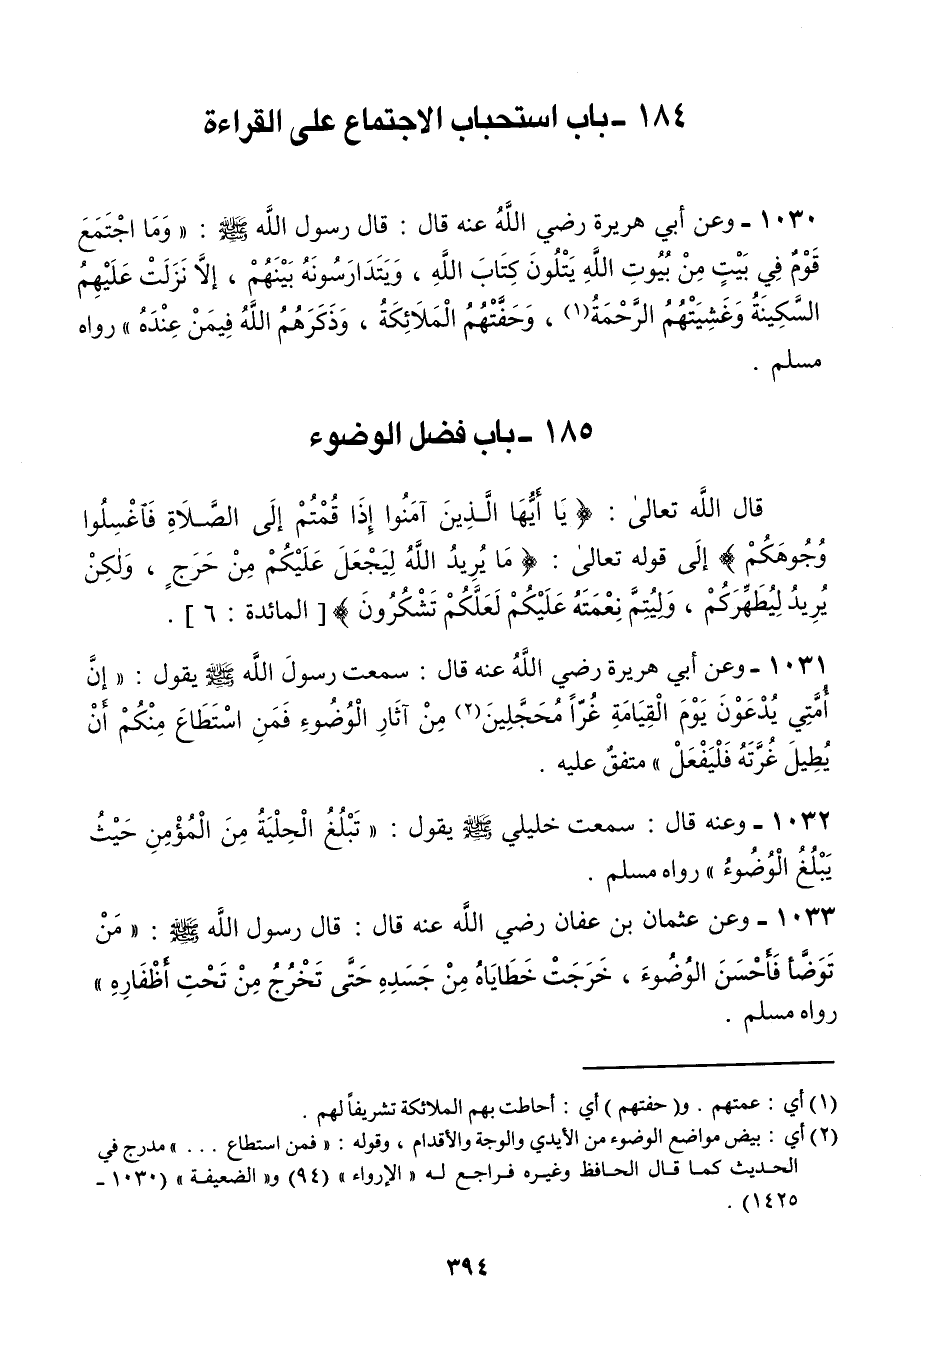 ١٨٤ - باب استحباب الاجتماع على القراءة
١٠٣٠ - وعن أبي هريرة رضي اللَّهُ عنه قال : قال رسول اللَّه ﷺ : « وَمَا اجْتَمَعَ
قَوْمٌ فِي بَيْتٍ مِنْ بُيُوتِ اللَّهِ يَتْلُونَ كِتَابَ اللَّهِ ، وَيَتَدَارَسُونَهُ بَيْنَهُمْ ، إلَّا نَزَلَتْ عَلَيْهِمُ
السَّكِينَةُ وَغَشِيَتْهُمُ الرَّحْمَةُ(١) ، وَحَفَّتْهُمُ الْمَلَائِكَةُ ، وَذَكَرَهُمُ اللَّهُ فِيمَنْ عِنْدَهُ » رواه
مسلم .
١٨٥ - باب فضل الوضوء
قال اللَّه تعالىٰ : ﴿ يَا أَيُّهَا الَّذِينَ آمَنُوا إِذَا قُمْتُمْ إِلَى الصَّلَاةِ فَاغْسِلُوا
وُجُوهَكُمْ ﴾ إلَى قوله تعالىٰ : ﴿ مَا يُرِيدُ اللَّهُ لِيَجْعَلَ عَلَيْكُمْ مِنْ حَرَجٍ ، وَلٰكِنْ
يُرِيدُ لِيُطَهِّرَكُمْ ، وَلِيُتِمَّ نِعْمَتَهُ عَلَيْكُمْ لَعَلَّكُمْ تَشْكُرُونَ ﴾ [ المائدة : ٦ ] .
١٠٣١ - وعن أبي هريرة رضي اللَّهُ عنه قال : سمعت رسولَ اللَّه ﷺ يقول : « إنَّ
أُمَّتِي يُدْعَوْنَ يَوْمَ الْقِيَامَةِ غُرّاً مُحَجَّلِينَ(٢) مِنْ آثَارِ الْوُضُوءِ فَمَنِ اسْتَطَاعَ مِنْكُمْ أَنْ
يُطِيلَ غُرَّتَهُ فَلْيَفْعَلْ » متفقٌ عليه .
١٠٣٢ - وعنه قال : سمعت خليلي ﷺ يقول : « تَبْلُغُ الْحِلْيَةُ مِنَ الْمُؤْمِنِ حَيْثُ
يَبْلُغُ الْوُضُوءُ » رواه مسلم .
١٠٣٣ - وعن عثمان بن عفان رضي اللَّه عنه قال : قال رسول اللَّه ﷺ : « مَنْ
تَوَضَّأَ فَأَحْسَنَ الوُضُوءَ ، خَرَجَتْ خَطَايَاهُ مِنْ جَسَدِهِ حَتَّى تَخْرُجُ مِنْ تَحْتِ أَظْفَارِهِ »
رواه مسلم .
(١) أي : عمتهم . و( حفتهم ) أي : أحاطت بهم الملائكة تشريفاً لهم .
(٢) أي : بيض مواضع الوضوء من الأيدي والوجة والأقدام ، وقوله : « فمن استطاع ... » مدرج في
الحديث كما قال الحافظ وغيره فراجع له « الإرواء » (٩٤) و« الضعيفة » (١٠٣٠ -
١٤٢٥) .
٣٩٤